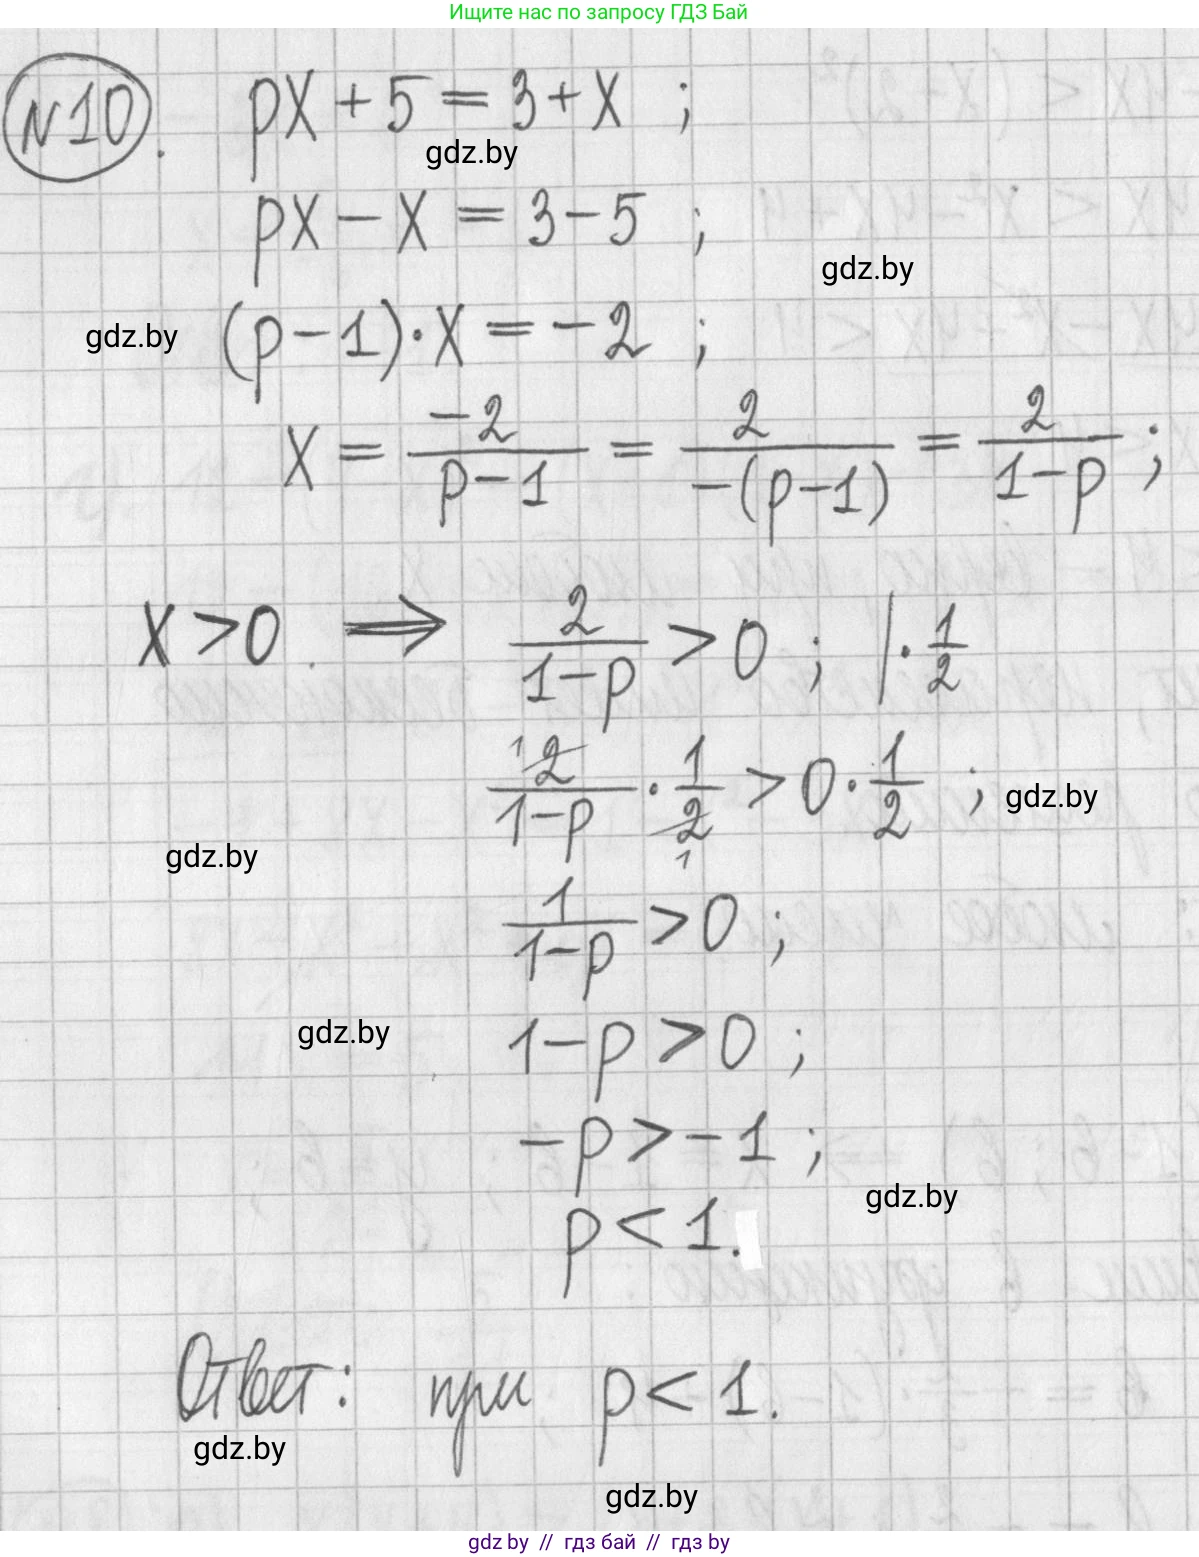 Ищите нас по запросу ГДЗ Бай
№10. px + 5 = 3 + x ;
gdz.by
px − x = 3 − 5 ;
gdz.by
gdz.by
(p − 1) · x = −2 ;
x = −2/(p − 1) = 2/(−(p − 1)) = 2/(1 − p) ;
x > 0. ⟹ 2/(1 − p) > 0 ; | · 1/2
2/(1 − p) · 1/2 > 0 · 1/2 ;
gdz.by
gdz.by
1/(1 − p) > 0 ;
gdz.by
1 − p > 0 ;
−p > −1 ;
gdz.by
p < 1.
Ответ: при p < 1.
gdz.by
gdz.by
gdz by // гдз бай // гдз by